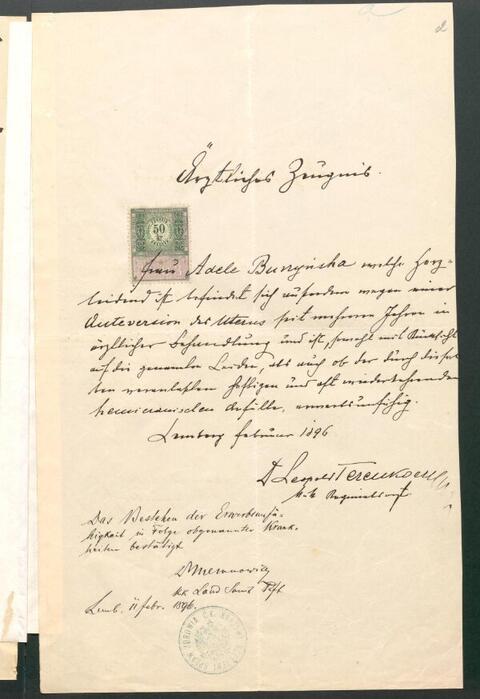 Ärztliches Zeugnis.
50
Frau Adele Buryńska welche herz-
leidend ist befindet sich außerdem wegen einer
Anteversion des Uterus seit mehreren Jahren in
ärztlicher Behandlung und ist, sowohl mit Rücksicht
auf die genannten Leiden, als auch ob der durch diesel-
ben veranlaßten heftigen und oft wiederkehrenden
Anfälle, erwerbsunfähig.
Lemberg Februar 1896
Dr Leopold
Das Bestehen der Erwerbsunfä-
higkeit in Folge obgenannter Krank-
heiten bestätigt
kk Land
Lemb. 11 Febr. 1896.